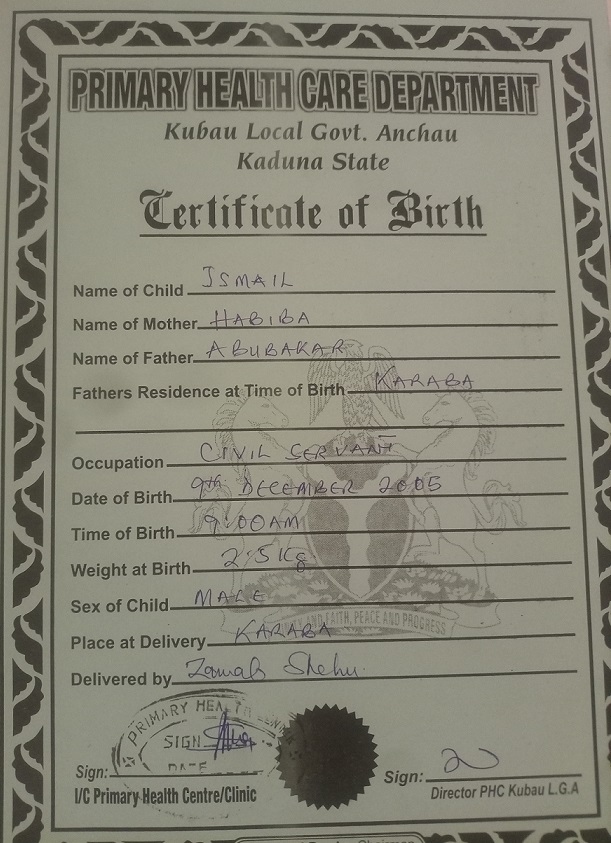 PRIMARY HEALTH CARE DEPARTMENT
Kubau Local Govt. Anchau
Kaduna State
Certificate of Birth
Name of Child ISMAIL
Name of Mother HABIBA
Name of Father ABUBAKAR
Fathers Residence at Time of Birth KARABA
Occupation CIVIL SERVANT
Date of Birth 9th DECEMBER 2005
Time of Birth 9:00AM
Weight at Birth 2.5Kg
Sex of Child MALE
AND FAITH, PEACE AND PROGRESS
Place at Delivery KARABA
Delivered by Shehu
PRIMARY HEALTH
SIGN
DATE
Sign:
I/C Primary Health Centre/Clinic
Sign:
Director PHC Kubau L.G.A